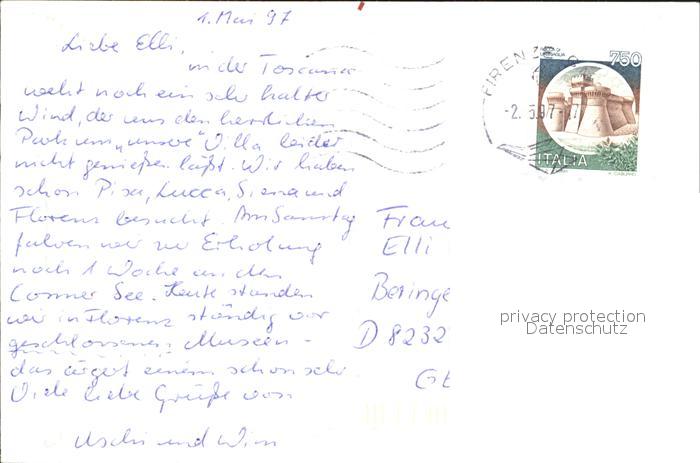 1. Mai 97
Liebe Elli,
in der Toscana
weht noch ein sehr kalter
Wind, der uns den herrlichen
Park um "unsere" Villa leider
nicht genießen läßt. Wir haben
schon Pisa, Lucca, Siena und
Florenz besucht. Am Samstag
fahren wir zur Erholung
noch 1 Woche an den
Comer See. Heute standen
wir in Florenz ständig vor
geschlossenen Museen -
das ärgert einem schon sehr.
Viele liebe Grüße von
Uschi und Wim
FIRENZE
-2.5.97-17
750
ITALIA
Frau
Elli
Beringe
D 8232
privacy protection
Datenschutz